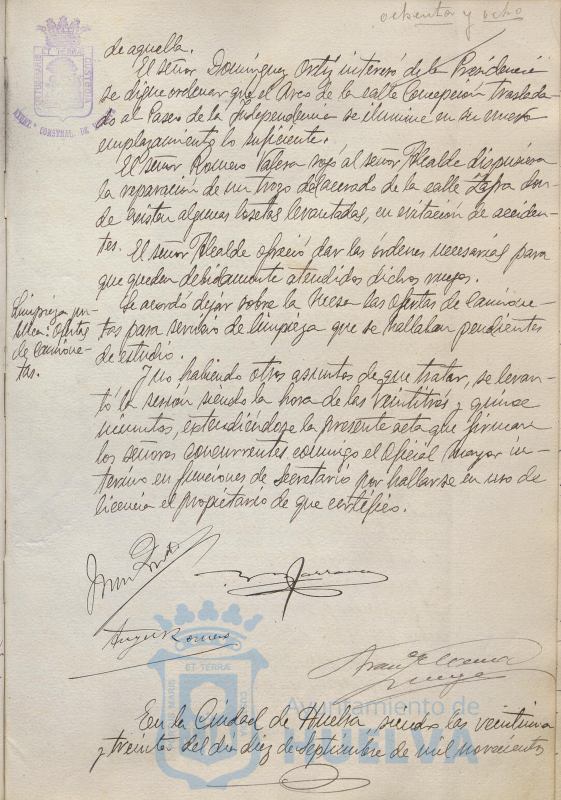 ochenta y ocho
de aquella.
El señor Domínguez Ortiz interesó de la Presidencia
se digne ordenar que el Arco de la calle Concepción traslada-
do al Paseo de la Independencia se ilumine en su nuevo
emplazamiento lo suficiente.
El señor Romero Valera rogó al señor Alcalde dispusiera
la reparación de un trozo del acerado de la calle Zafra don-
de existen algunas losetas levantadas, en evitación de acciden-
tes.
El señor Alcalde ofreció dar las órdenes necesarias para
que queden debidamente atendidos dichos ruegos.
Limpieza pú-
blica: ofertas
de camione-
tas.
Se acordó dejar sobre la Mesa las ofertas de camione-
tas para servicio de limpieza que se hallaban pendientes
de estudio.
Y no habiendo otros asuntos de que tratar, se levan-
tó la sesión siendo la hora de las veintitrés y quince
minutos, extendiéndose la presente acta que firman
los señores concurrentes conmigo el Oficial mayor in-
terino en funciones de Secretario por hallarse en uso de
licencia el propietario de que certifico.
Angel Romero
Ayuntamiento de
HUELVA
En la Ciudad de Huelva siendo las veintiuna
y treinta del día diez de Septiembre de mil novecientos